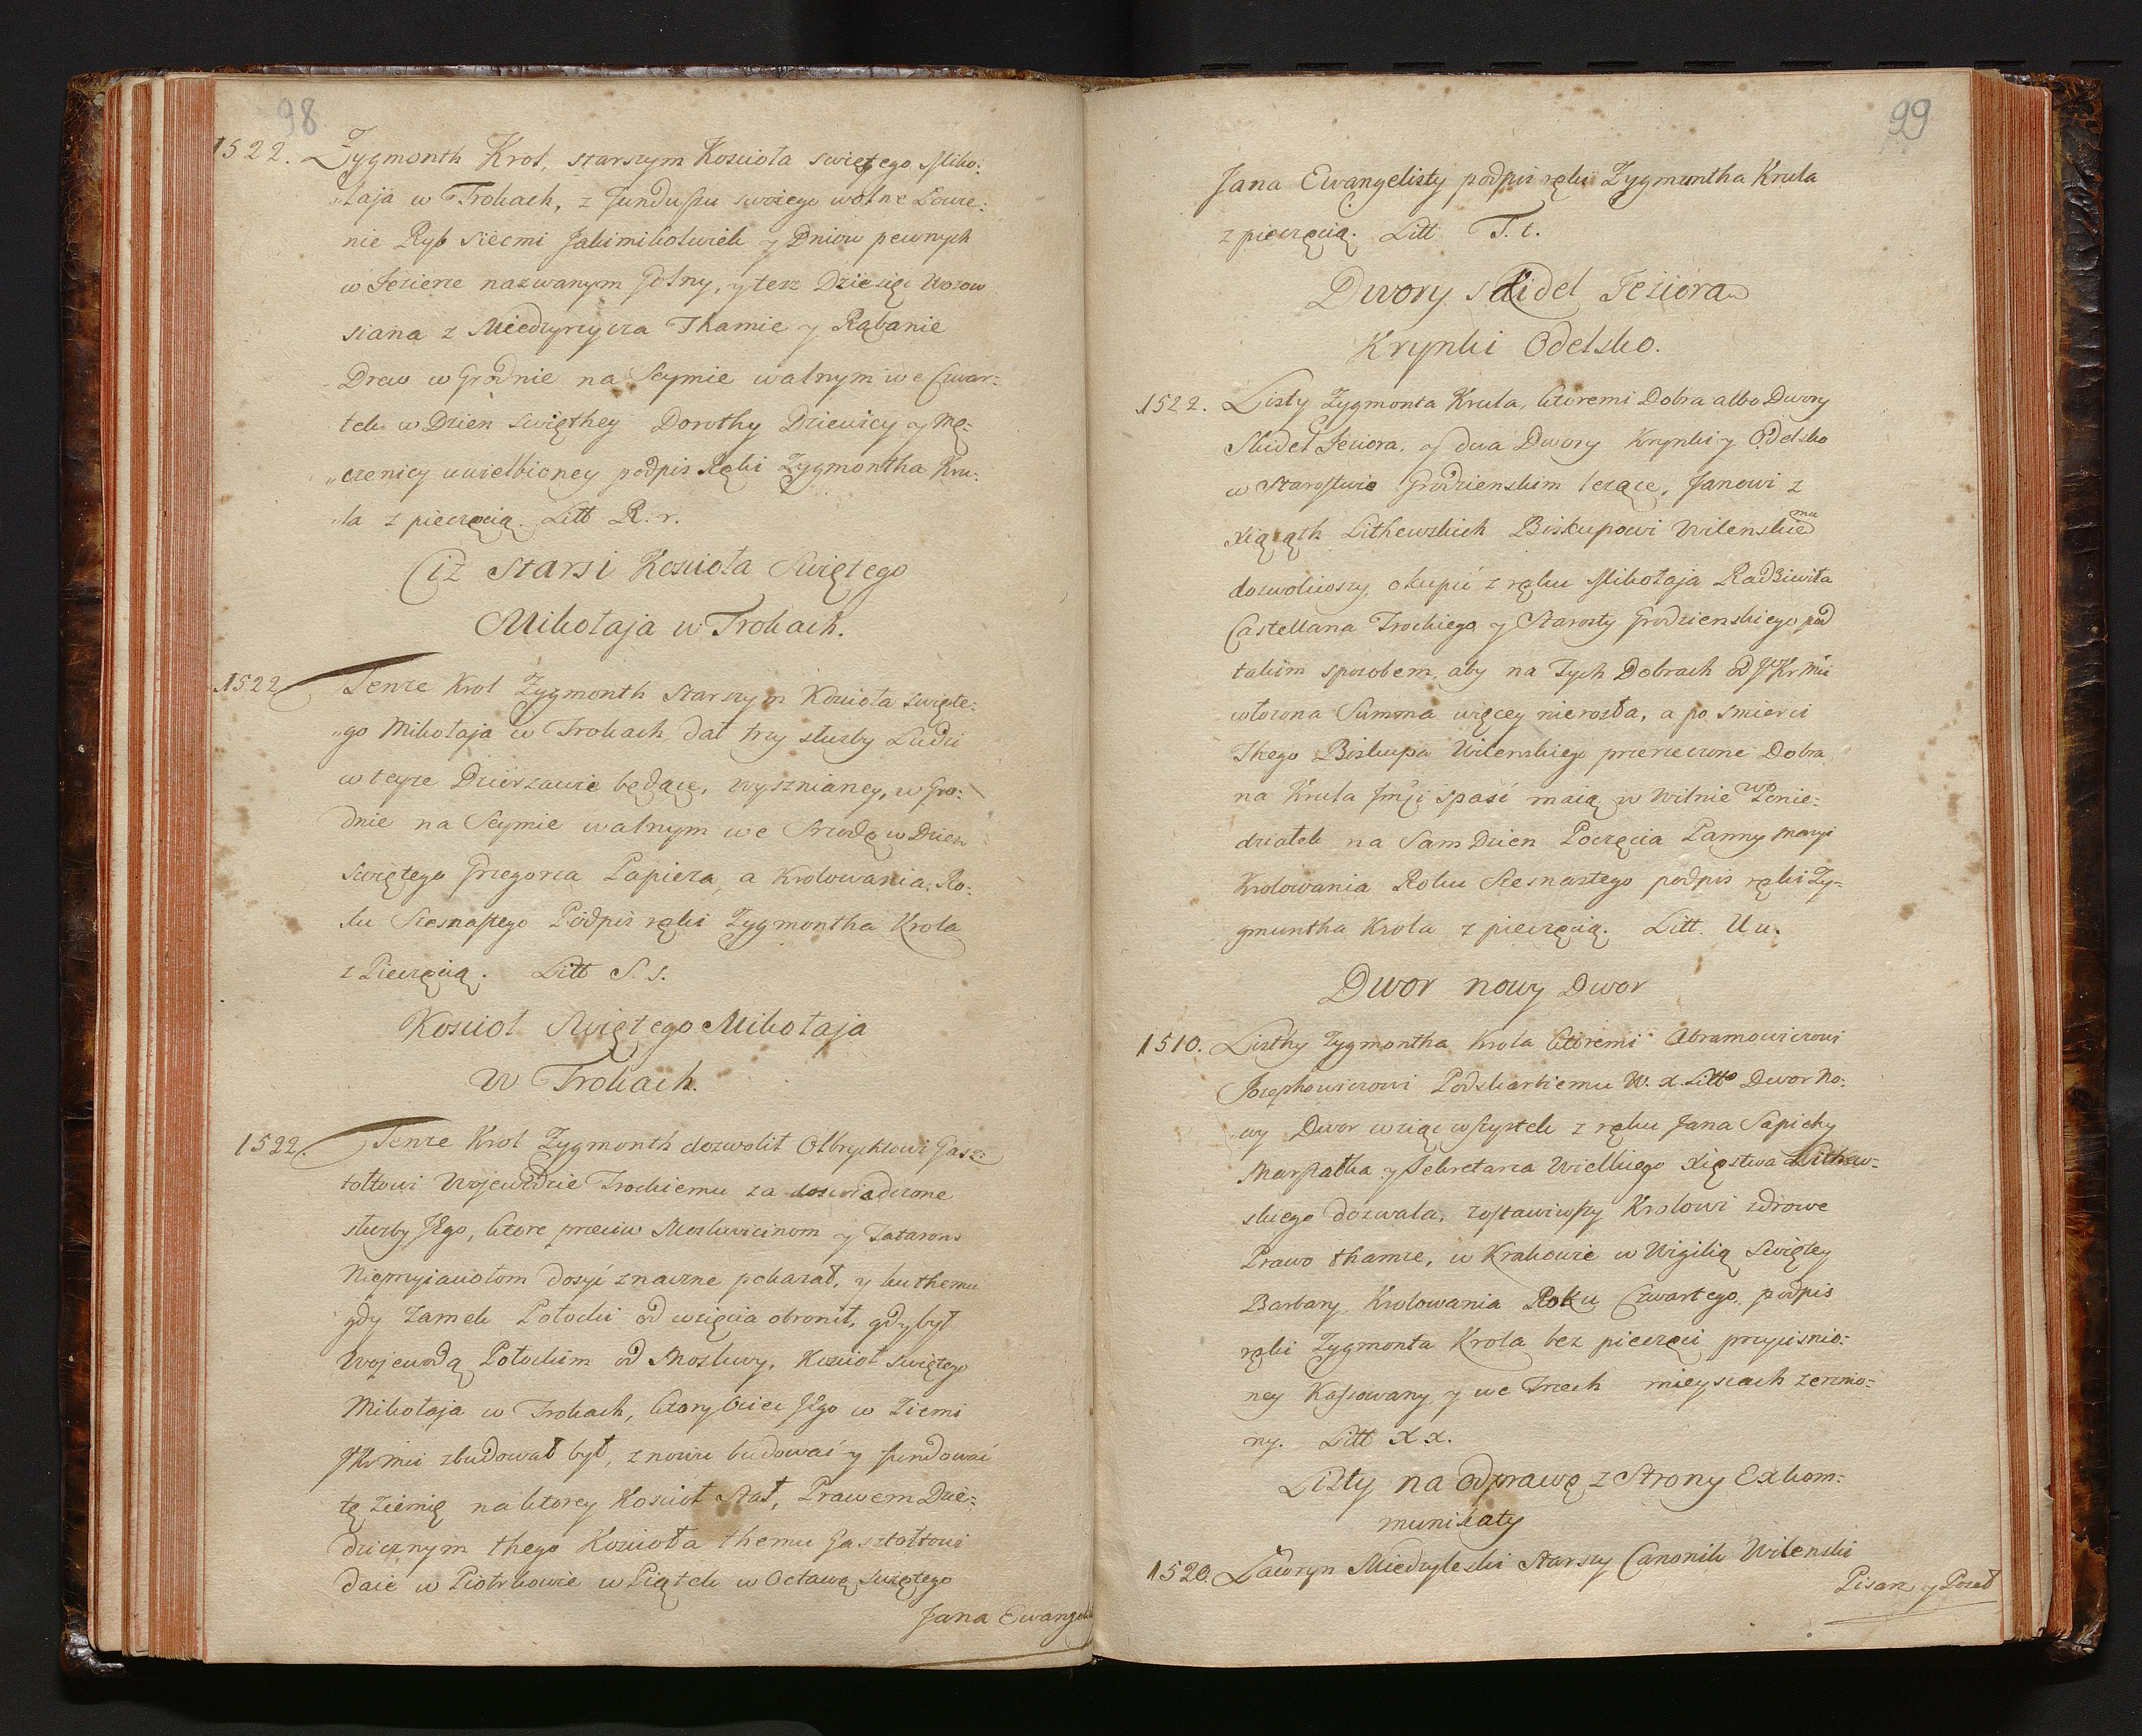 98
1522. Zygmonth Krol, starszym Kosciola swiętego Miko:
„łaja w Trokach, z Fundussu swoiego wolne Łowie:
nie Ryb Siecmi Jakimikolwiek y Dniow pewnych
w Jezierze nazwanym Golny, y tesz Dziesięc Wozow
siana z Miedzyrzycza Thamie y Rąbanie
Drew w Grodnie na Seymie walnym we Czwar:
tek w Dzien Swięthey Dorothy Dziewicy y Mę:
„czenicy uwielbioney podpis Ręki Zygmontha Kru:
„la z pieczęcią. Litt R. r.
Ciż Starsi Kosciola Swiętego
Mikołaja w Trokach.
1522 Tenze Krol Zygmonth Starszym Kosciola swięte:
„go Mikołaja w Trokach dał trzy słuzby Ludzi
w teyze Dzierzawie będące, wysznianey, w Gro:
dnie na Seymie walnym we Srzodę w Dzien
Swiętego Grzegorza Papieza, a Krolowania Ro:
ku Szesnastego Podpis ręki Zygmontha Krola
z Pieczęcią. Litt S. s.
Kosciol Swiętego Mikołaja
W Trokach.
1522. Tenze Krol Zygmonth dozwolił Olbrychtowi Gasz:
tołtowi Wojewodzie Trockiemu za doswiadczone
słuzby Jego, ktore przeciw Moskwicinom y Tatarom
Nieprzyiaciołom dosyć znaczne pokazał, y ku themu
gdy Zamek Połocki od wzięcia obronił, gdy był
Wojewodą Połockim od Moskwy, Kosciol swiętego
Mikołaja w Trokach, ktory Ociec Jego w Ziemi
JKr Mci zbudował był, znowu budować y fundować
tę Ziemię na ktorey Kosciol Stał, Prawem Dzie:
dzicznym thego Kosciola themu Gasztołtowi
daie w Piotrkowie w Piątek w Octawę Swiętego
Jana Ewangeli
99
Jana Ewangelisty podpis ręki Zygmuntha Krula
z pieczęcią. Litt T. t.
Dwory Skidel Jeziora
Krynki Odelsko.
1522. Listy Zygmonta Krula, ktoremi Dobra albo Dwory
Skidel Jeziora, y dwa Dwory Krynki y Odelsko
w Starostwie Grodzienskim lezące, Janowi z
Xiąząth Lithewskich Biskupowi Wilenskiemu
dozwoliwszy, okupić z ręku Mikołaja Radziwiła
Castellana Trockiego y Starosty Grodzienskiego pod
takim sposobem, aby na Tych Dobrach od JeKr Mci
włozona Summa więcey nierosła, a po smierci
Thego Biskupa Wilenskiego przerzeczone Dobra
na Krula spaść maią, w Wilnie w Ponie:
działek na Sam Dzien Poczęcia Panny Maryi
Krolowania Roku Szesnastego podpis ręki Zy:
gmuntha Krola z pieczęcią. Litt. U u.
Dwor nowy Dwor
1510. Listhy Zygmontha Krola ktoremi Abramowiczowi
Jozephowiczowi Podskarbiemu W. X. Litto Dwor No:
wy Dwor wziąć wszystek z ręku Jana Sapiehy
Marszałka y Sekretarza Wielkiego Xięstwa Lithew:
skiego dozwala, zostawiwszy Krolowi zdrowe
Prawo thamze, w Krakowie w Wigilią Swiętey
Barbary Krolowania Roku Czwartego, podpis
ręki Zygmonta Krola bez pieczęci przycisnio:
ney Kassowany y we Trzech mieyscach
ny. Litt X x.
Listy na odprawę z Strony Exkom:
munikaty
1520. Lawryn Miedzyleski Starszy Canonik Wilenski
Pisarz y Poseł